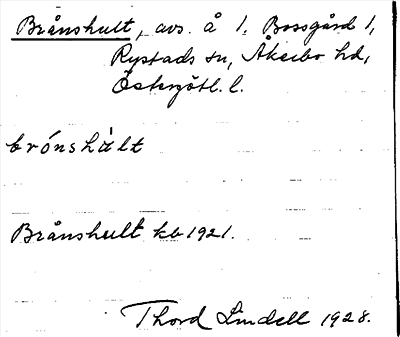 Brånshult, avs. å 1. Bossgård 1,
Rystads sn, Åkerbo hd,
Östergötl. l.
brónshàlt
Brånshult kb 1921.
Thord Lindell 1928.